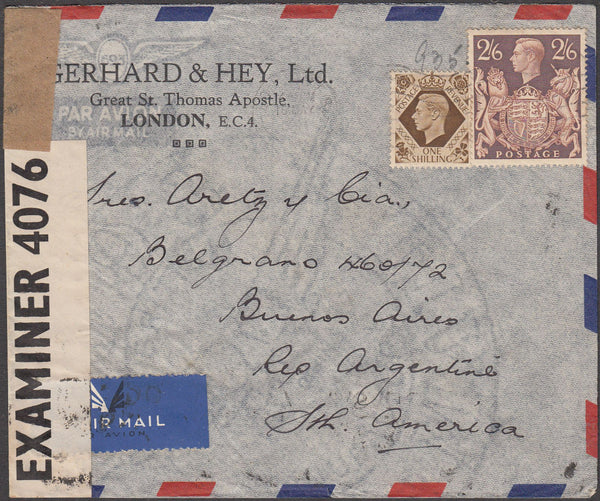 GERHARD & HEY, Ltd.
Great St. Thomas Apostle,
LONDON, E.C.4.
PAR AVION
BY AIR MAIL
935
POSTAGE REVENUE
ONE
SHILLING
2/6 2/6
POSTAGE
EXAMINER 4076
Sres. Aretz y Cia.,
Belgrano 460/72
Buenos Aires
Rep Argentine
Sth. America
AIR MAIL
AVION